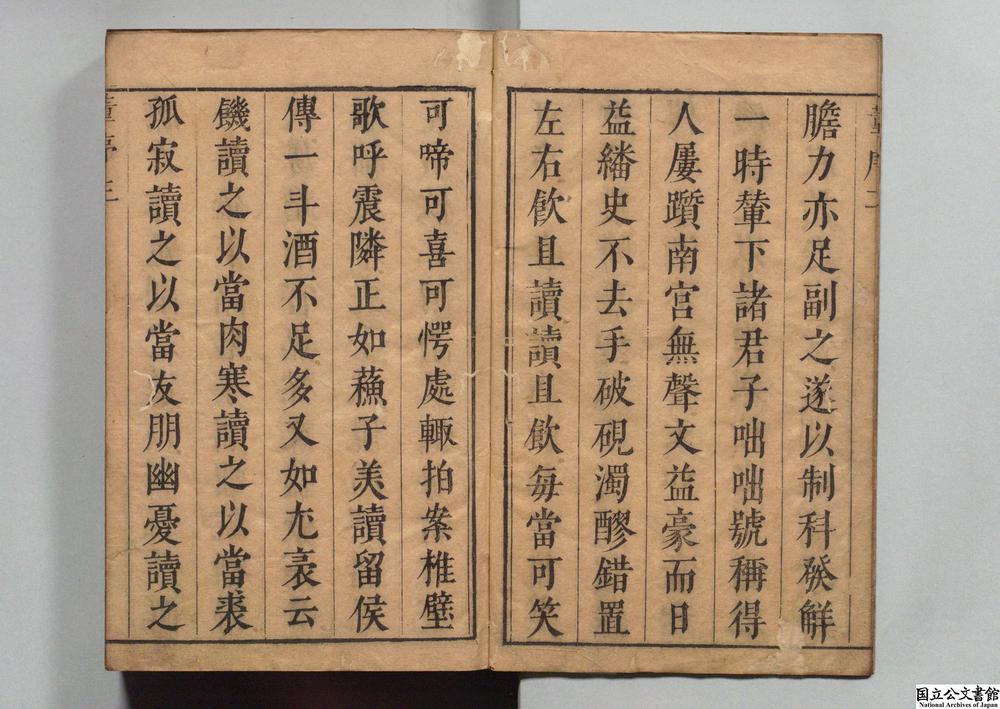 膽力亦足副之遂以制科發解
一時輦下諸君子咄咄號稱得
人屢躓南宫無聲文益豪而日
益繙史不去手破硯濁醪錯置
左右飮且讀讀且飮每當可笑
可啼可喜可愕處輙拍案椎壁
歌呼震隣正如蘓子美讀留侯
傳一斗酒不足多又如尤袤云
饑讀之以當肉寒讀之以當裘
孤寂讀之以當友朋幽憂讀之
国立公文書館
National Archives of Japan